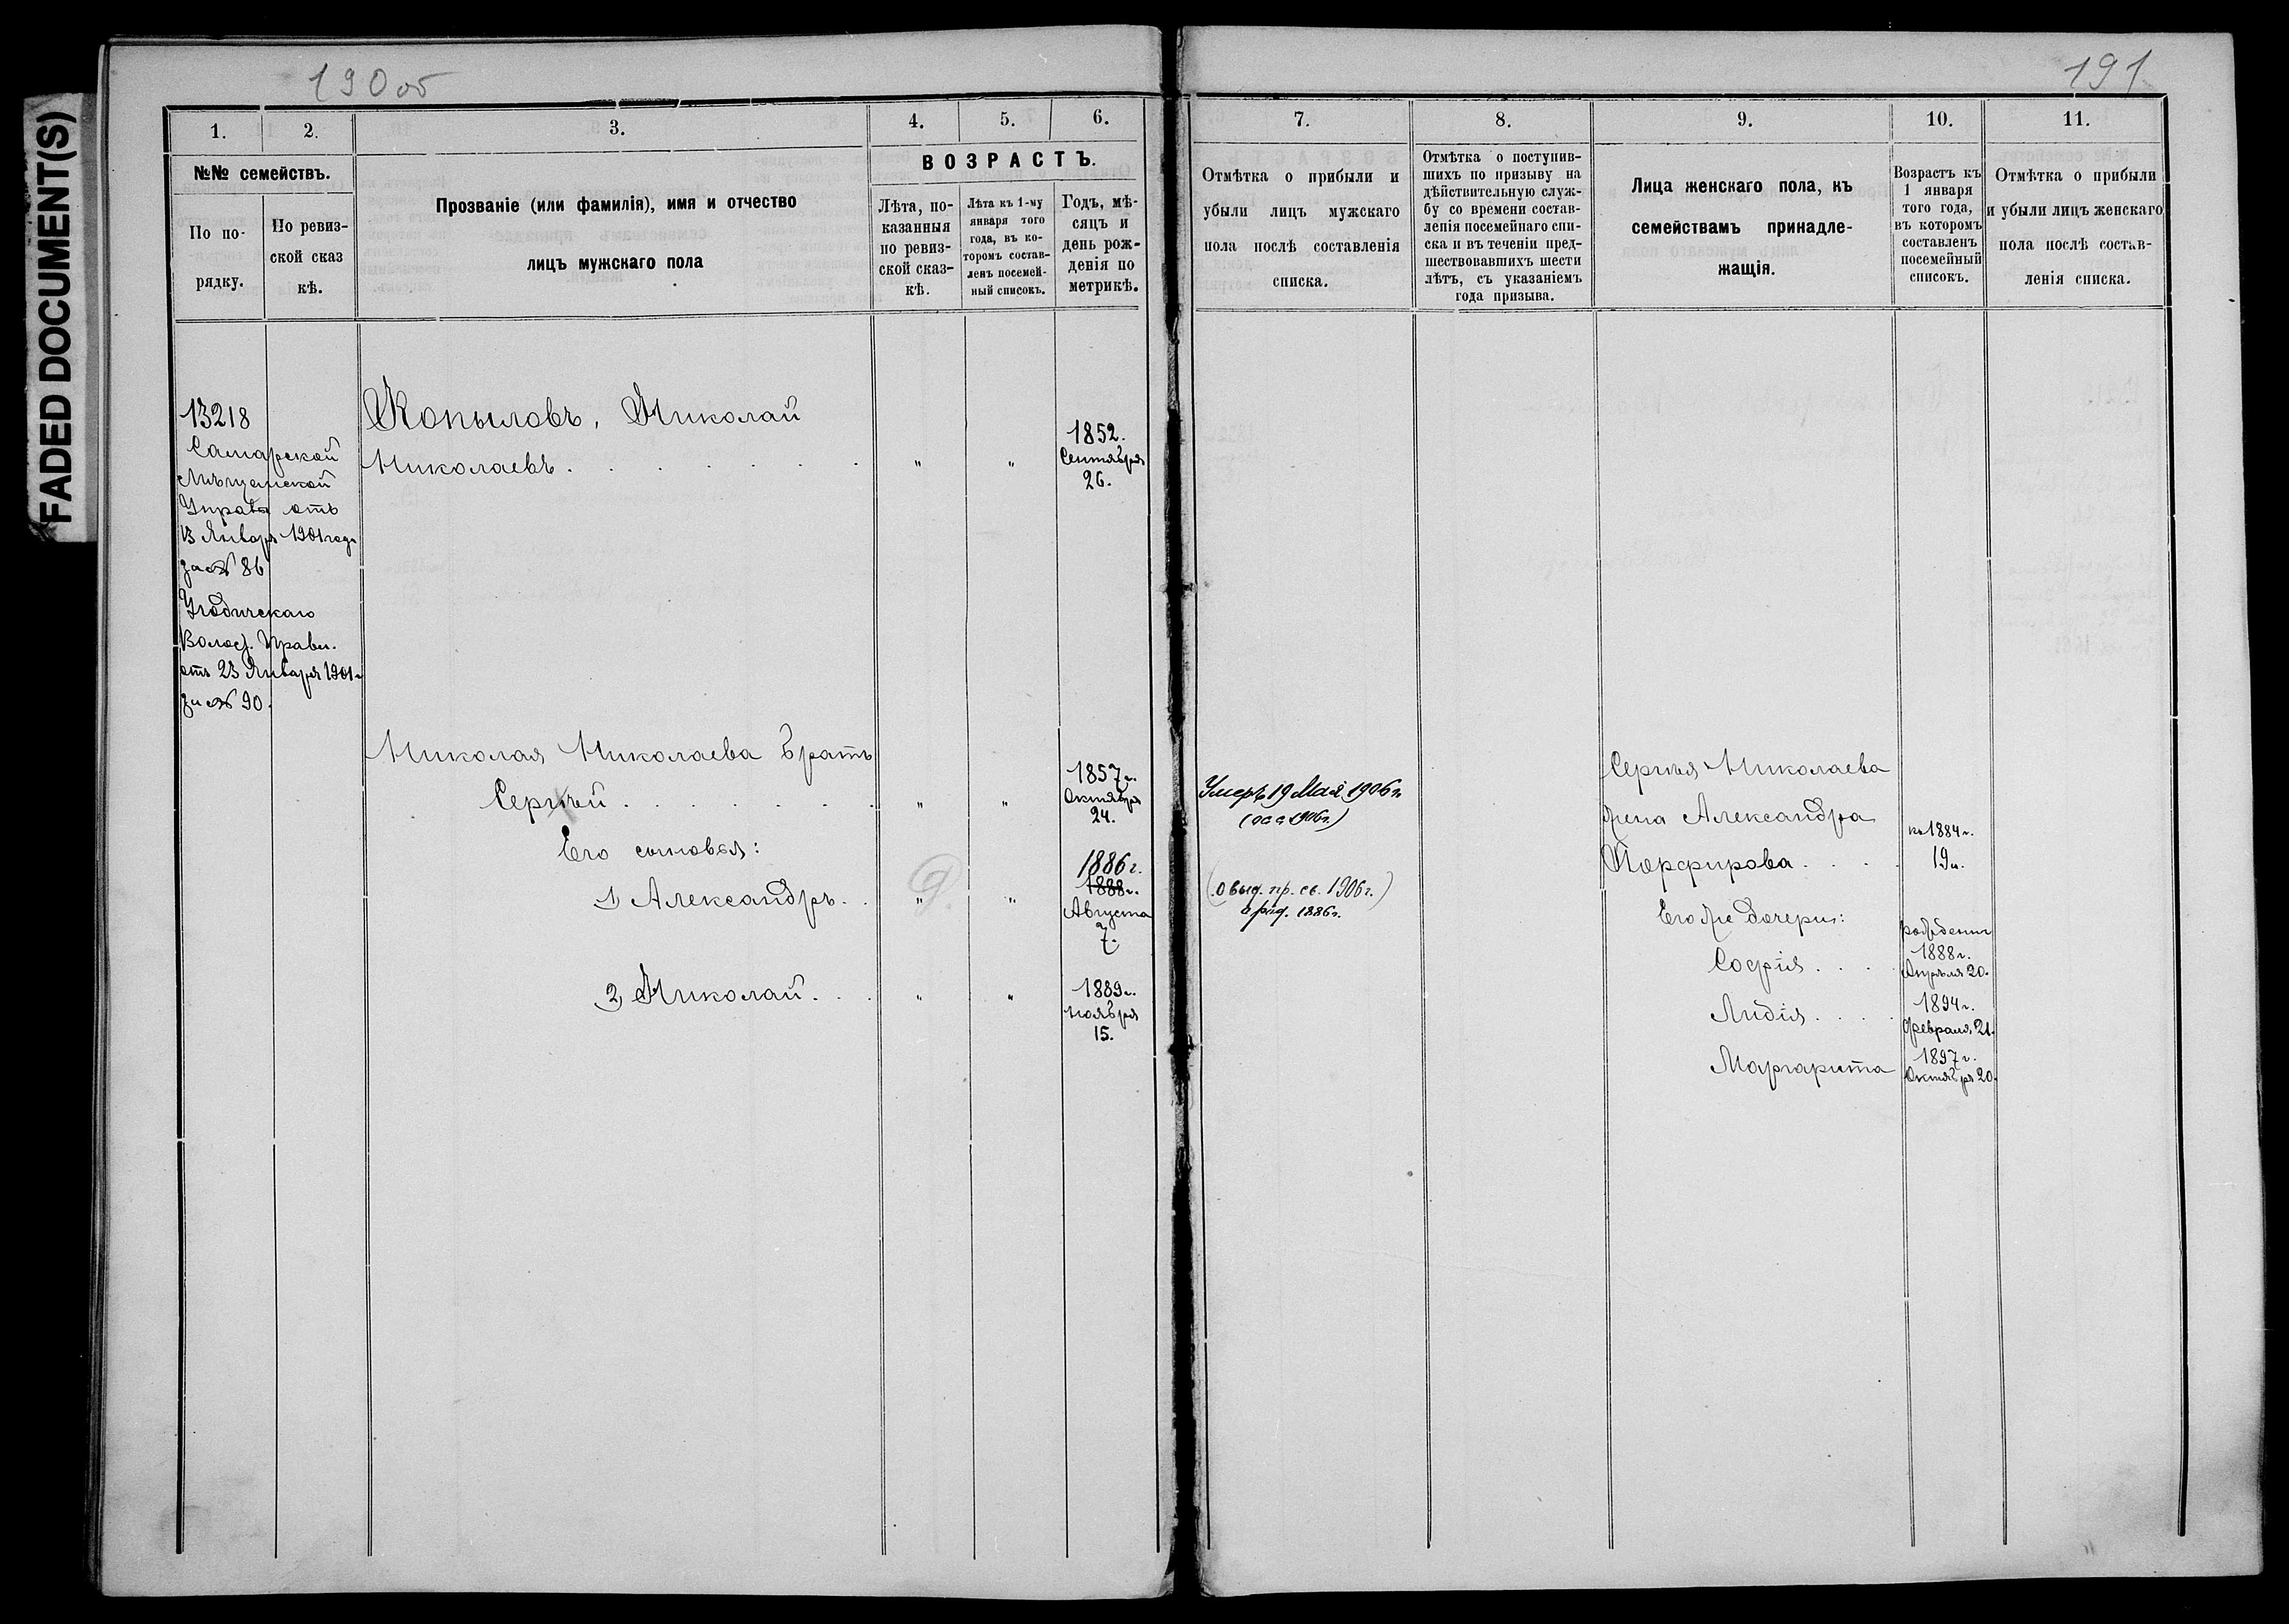 FADED DOCUMENT(S)
190 об
191
1.
2.
3.
4.
5.
6.
№№ семействъ.
По по-
рядку.
По ревиз-
ской сказ
кѣ.
Прозваніе (или фамилія), имя и отчество
лицъ мужскаго пола
ВОЗРАСТЪ.
Лѣта, по-
казанныя
по ревиз-
ской сказ-
кѣ.
Лѣта къ 1-му
января того
года, въ ко-
торомъ состав-
ленъ посемей-
ный списокъ.
Годъ, мѣ-
сяцъ и
день рож-
денія по
метрикѣ.
7.
8.
9.
10.
11.
Отмѣтка о прибыли и
убыли лицъ мужскаго
пола послѣ составленія
списка.
Отмѣтка о поступив-
шихъ по призыву на
дѣйствительную служ-
бу со времени состав-
ленія посемейнаго спи-
ска и въ теченіи пред-
шествовавшихъ шести
лѣтъ, съ указаніемъ
года призыва.
Лица женскаго пола, къ
семействамъ принадле-
жащія.
Возрастъ къ
1 января
того года,
въ которомъ
составленъ
посемейный
списокъ.
Отмѣтка о прибыли
и убыли лицъ женскаго
пола послѣ состав-
ленія списка.
13218
Самарской
Мѣщанской
Управы отъ
13 Января 1901 года
за № 86
Угодическаго
Волос. Правл.
отъ 23 Января 1901 г
за № 90.
Копыловъ, Николай
Николаевъ . . . . . . . " "
1852.
Сентября
26.
Николая Николаева братъ
Сергѣй . . . . . . . " "
1857 г.
Октября
24.
Умеръ 19 Мая 1906 г.
Его сыновья:
1) Александръ . . " "
1886 г.
1888 г.
Августа
7.
о род. 1886 г.
2) Николай . . . " "
1889 г.
ноября
15.
Сергѣя Николаева
жена Александра
Порфирова . . . .
къ 1884 г.
19 л.
Его же дочери:
София . . . .
рождения
1888 г.
Апрѣля 20.
Лидія . . . .
1894 г.
Февраля 21.
Маргарита
1897 г.
Октября 20.